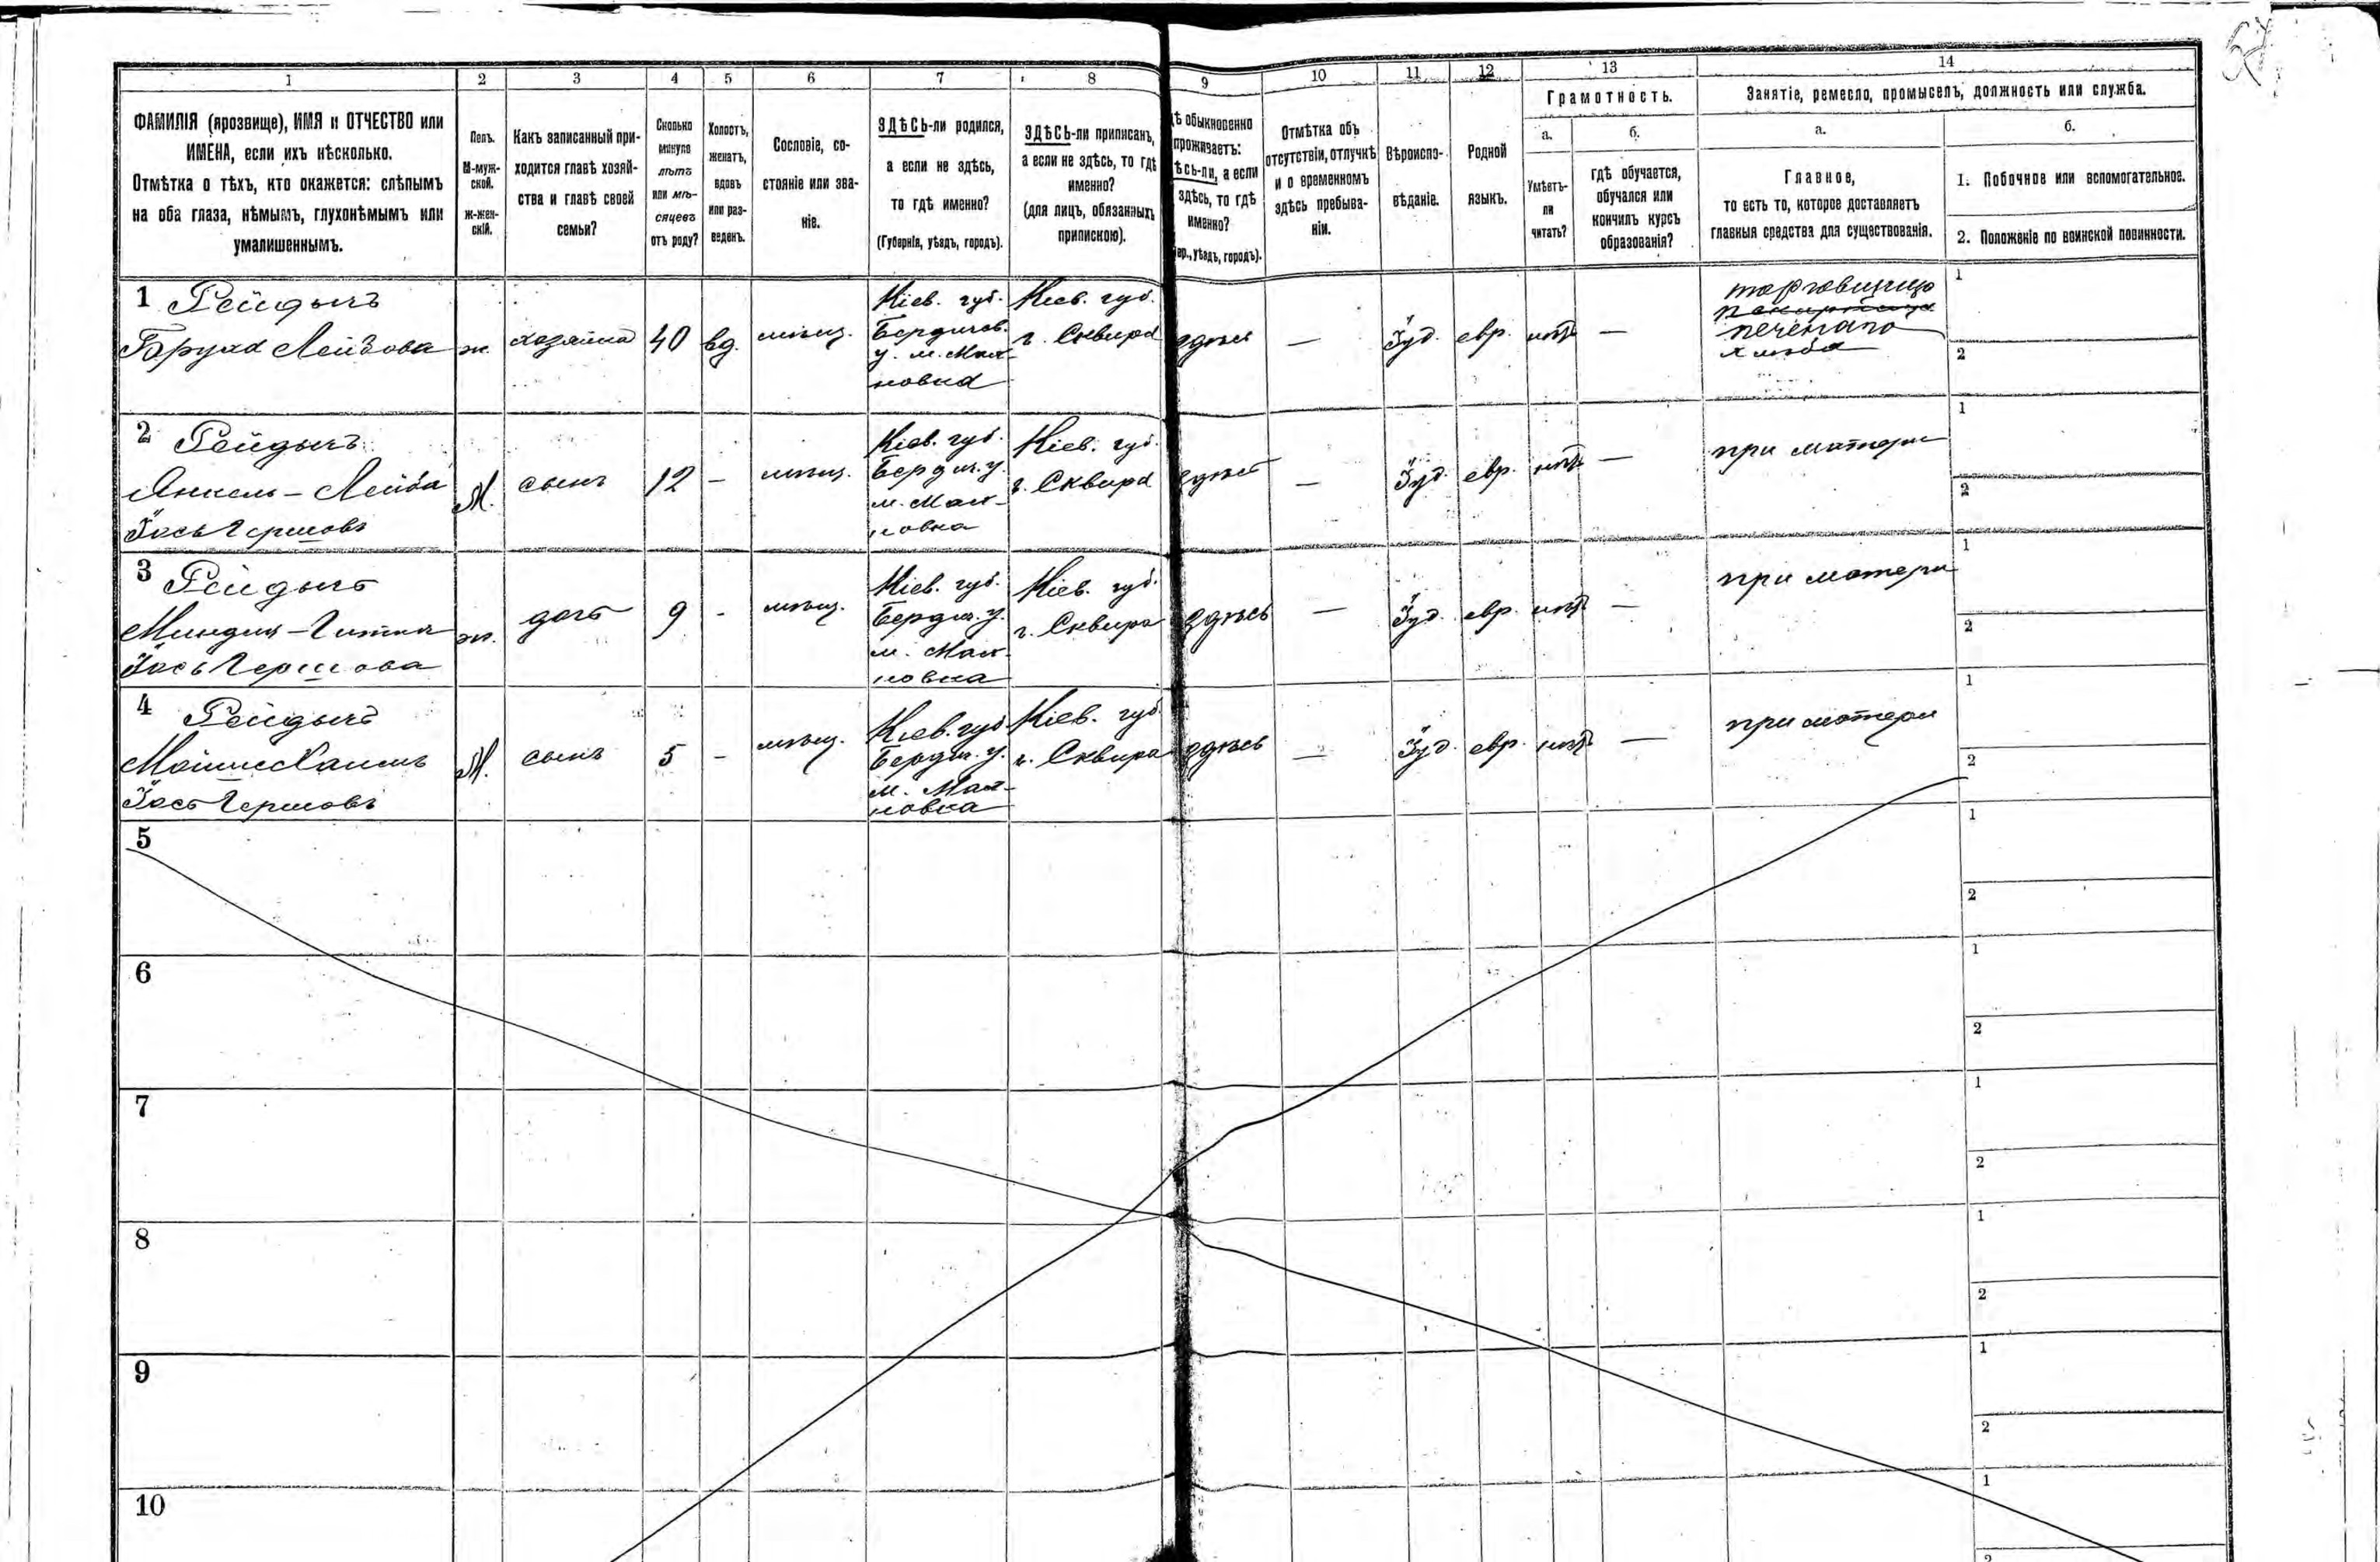 57
1
2
3
4
5
6
7
8
9
10
11
12
13
14
ФАМИЛІЯ (прозвище), ИМЯ и ОТЧЕСТВО или
ИМЕНА, если ихъ нѣсколько.
Отмѣтка о тѣхъ, кто окажется: слѣпымъ
на оба глаза, нѣмымъ, глухонѣмымъ или
умалишеннымъ.
Полъ.
М-муж-
ской.
Ж-жен-
скій.
Какъ записанный при-
ходится главѣ хозяй-
ства и главѣ своей
семьи?
Сколько
минуло
лѣтъ
или мѣ-
сяцевъ
отъ роду?
Холостъ,
женатъ,
вдовъ
или раз-
веденъ.
Сословіе, со-
стояніе или зва-
ніе.
ЗДѢСЬ-ли родился,
а если не здѣсь,
то гдѣ именно?
(Губернія, уѣздъ, городъ).
ЗДѢСЬ-ли приписанъ,
а если не здѣсь, то гдѣ
именно?
(для лицъ, обязанныхъ
припискою).
ѣ обыкновенно
проживаетъ:
ѢСЬ-ли, а если
здѣсь, то гдѣ
именно?
ер., уѣздъ, городъ).
Отмѣтка объ
отсутствіи, отлучкѣ
и о временномъ
здѣсь пребыва-
ніи.
Вѣроиспо-
вѣданіе.
Родной
языкъ.
Грамотность.
а.
Умѣетъ-
ли
читать?
б.
гдѣ обучается,
обучался или
кончилъ курсъ
образованія?
Занятіе, ремесло, промыселъ, должность или служба.
а.
Главное,
то есть то, которое доставляетъ
главныя средства для существованія.
б.
1. Побочное или вспомогательное.
2. Положеніе по воинской повинности.
1 Рейдычъ
Бруха Лейбова
ж.
хозяйка
40
вд.
мѣщ.
Кіев. губ.
Бердичев.
у. м. Мах-
новка
Кіев. губ.
г. Сквира
здѣсь
—
Іуд.
евр.
нѣтъ
—
торговицею
печенаго
хлѣба
1
2
2 Рейдычъ
Янкель-Лейба
Іось Гершовъ
М.
сынъ
12
-
мѣщ.
Кіев. губ.
Бердич. у.
м. Мах-
новка
Кіев. губ.
г. Сквира
здѣсь
—
Іуд.
евр.
нѣтъ
—
при матери
1
2
3 Рейдычъ
Миндля-Гитля
Іось Гершова
ж.
дочь
9
-
мѣщ.
Кіев. губ.
Бердич. у.
м. Мах-
новка
Кіев. губ.
г. Сквира
здѣсь
—
Іуд.
евр.
нѣтъ
—
при матери
1
2
4 Рейдычъ
Іось Гершовъ
М.
сынъ
5
-
мѣщ.
Кіев. губ.
Бердич. у.
м. Мах-
новка
Кіев. губ.
г. Сквира
здѣсь
—
Іуд.
евр.
нѣтъ
—
при матери
1
2
5
1
2
6
1
2
7
1
2
8
1
2
9
1
2
10
1
2